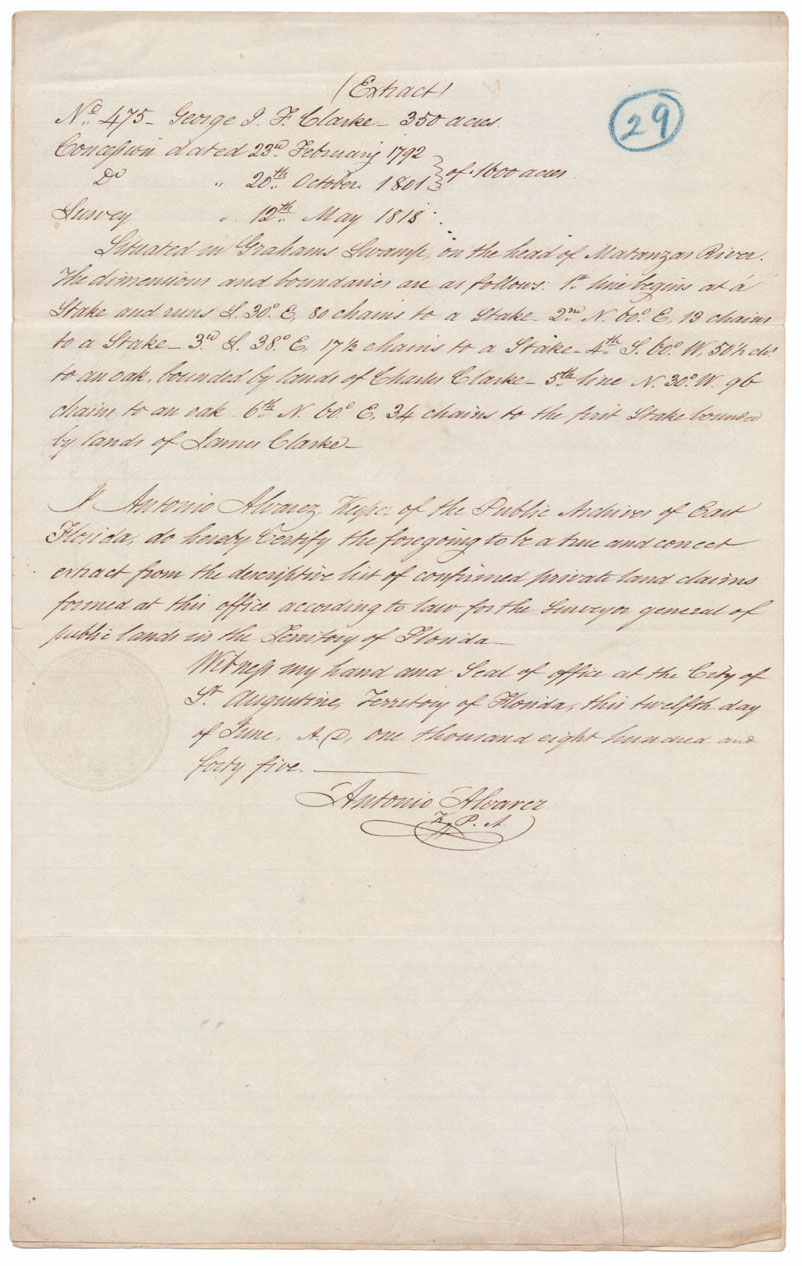 (Extract)
29
No. 475 - George J. F. Clarke - 350 acres.
Concession dated 23rd. February 1792
Do " 20th. October. 1801 } of 1600 acres
Survey " 12th. May 1818.
Situated in Grahams Swamp, on the head of Matanzas River.
The dimensions and boundaries are as follows. 1st. line begins at a
Stake and runs S. 30° E, 80 chains to a Stake - 2nd N. 60° E, 13 chains
to a Stake - 3d S. 38° E, 17 1/2 chains to a Stake - 4th S. 60° W, 50 1/2 chs.
to an oak, bounded by lands of Charles Clarke - 5th line N. 30° W. 96
chains to an oak 6th N. 60° E, 34 chains to the first Stake bounded
by lands of James Clarke -
I Antonio Alvarez, Keeper of the Public Archives of East
Florida, do hereby Certify the foregoing to be a true and correct
extract from the descriptive list of confirmed private land claims
formed at this office according to law for the Surveyor general of
public lands in the Territory of Florida -
Witness my hand and Seal of office at the City of
St. Augustine, Territory of Florida, this twelfth day
of June, A.D, one thousand eight hundred and
forty five.
Antonio Alvarez
K. P. A.